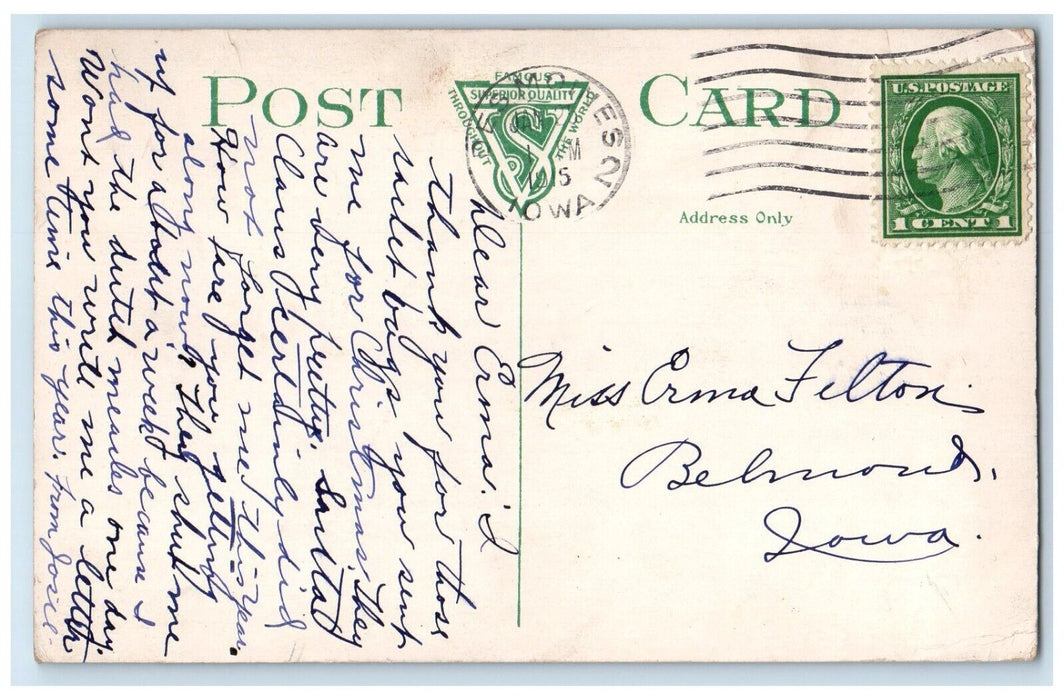 POST CARD
FAMOUS
SUPERIOR QUALITY
THROUGHOUT
THE WORLD
MOINES 2
JAN
1 M
1915
IOWA
U.S. POSTAGE
1 CENT 1
Address Only
Miss Erma Felton.
Belmond,
Iowa.
Dear Erma: I
thank you for those
you sent
me for Christmas. They
are very pretty. Santa
Claus certainly did
not forget me this year.
How are you getting
along now. They shut me
up for about a week because I
had the dutch measles one day.
Wont you write me a letter
some time this year. From Josie.